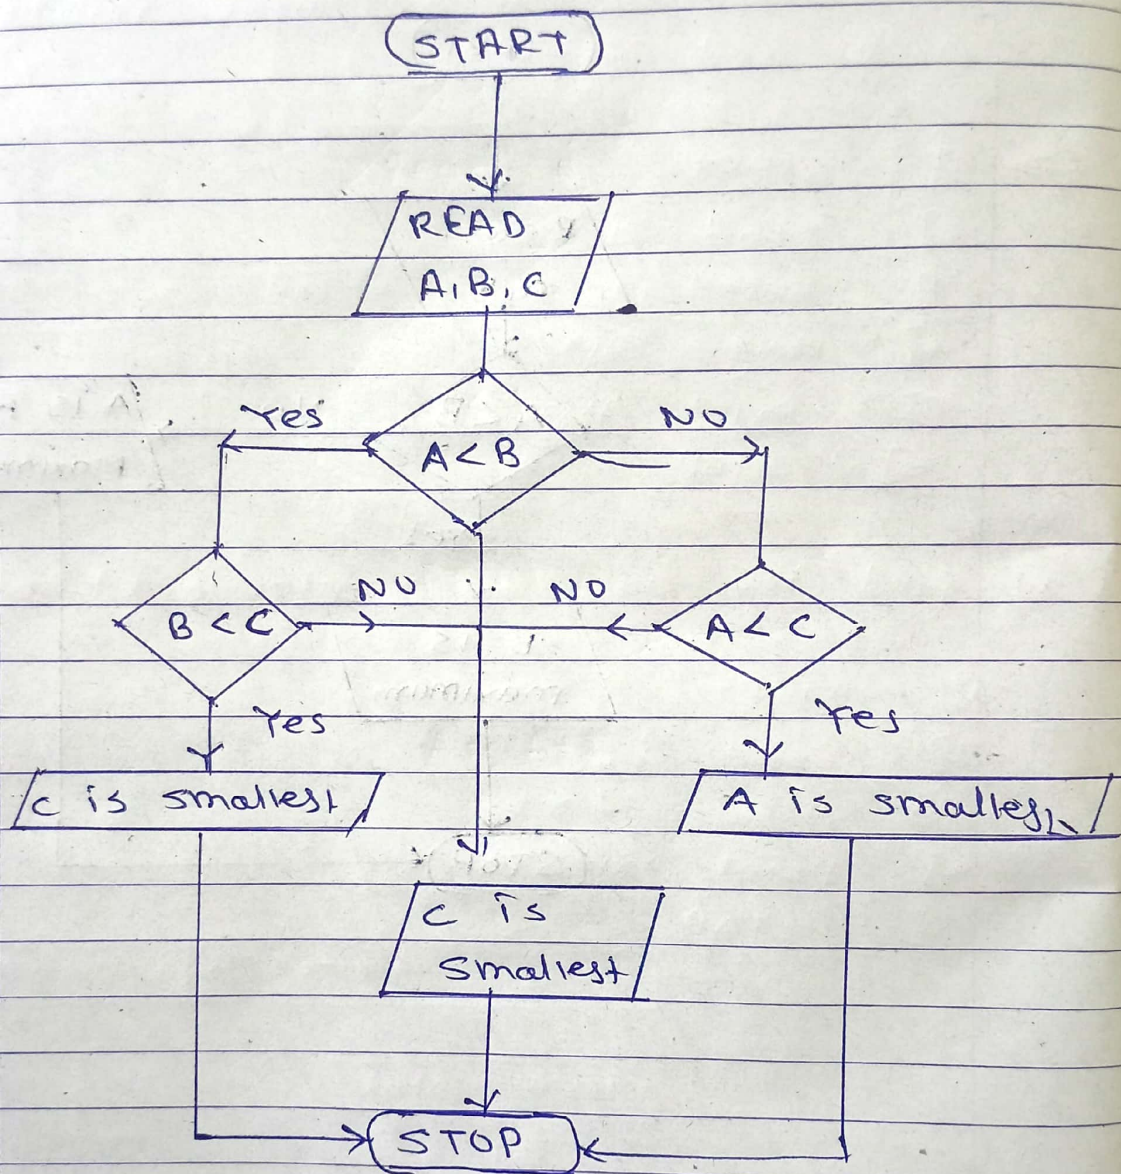 START
READ
A, B, C
Yes
A<B
NO
B<C
NO
NO
A<C
Yes
Yes
C is smallest
A is smallest
C is
smallest
STOP